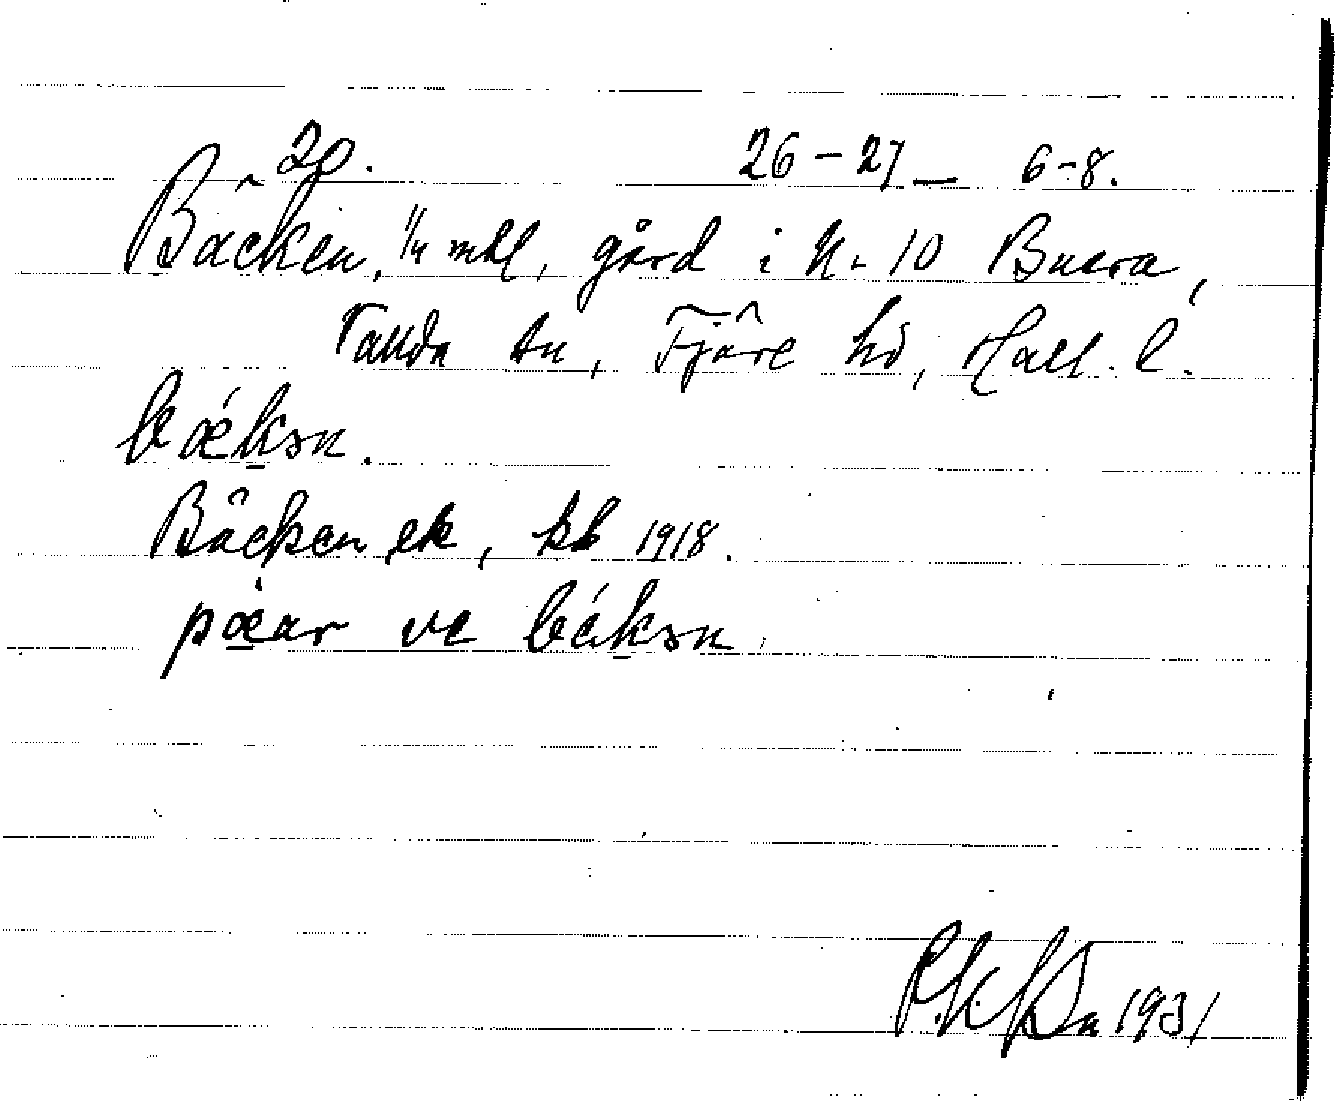 20. 26-27- 6-8.
Bäcken, 1/4 mtl, gård i N. 10 Buera,
Tölö sn, Fjäre hd, Hall. l.
bǽkən.
Bäcken, ek, kb 1918.
pæar ve bǽkən.
1931